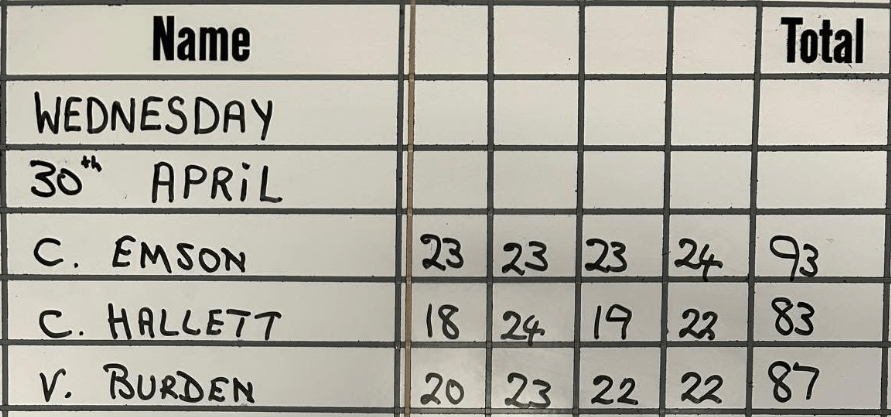 Name Total
WEDNESDAY
30th APRIL
C. EMSON 23 23 23 24 93
C. HALLETT 18 24 19 22 83
V. BURDEN 20 23 22 22 87